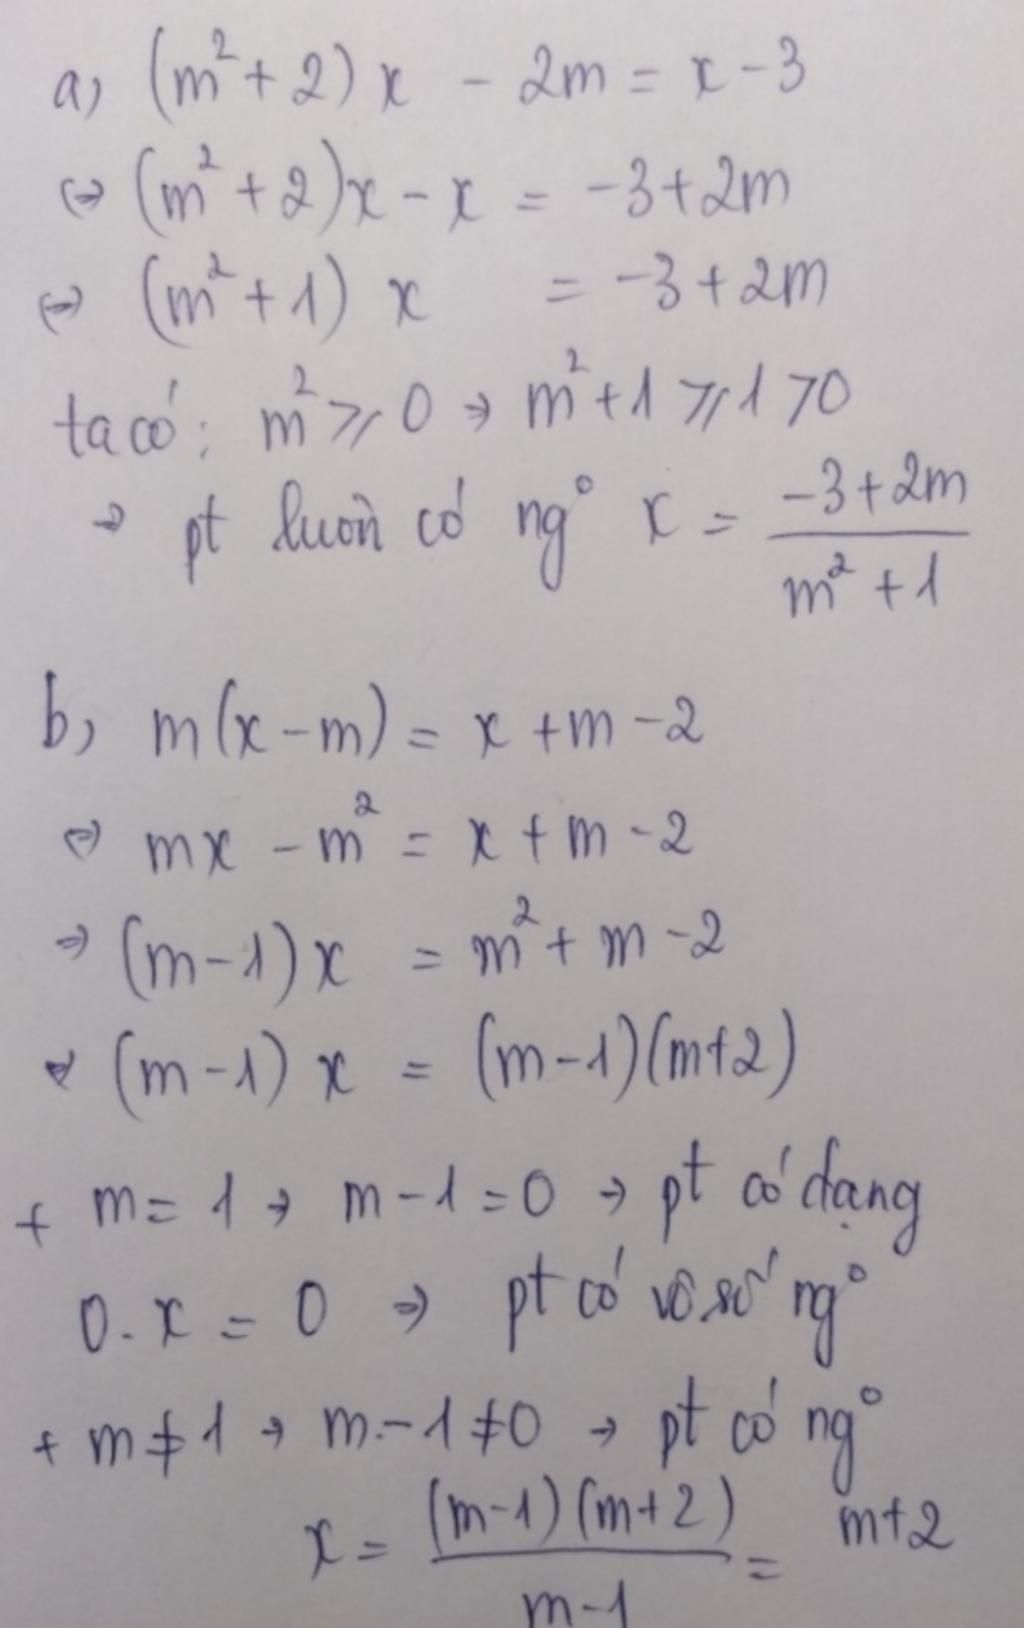 a, (m² + 2) x - 2m = x - 3
⇔ (m² + 2)x - x = -3 + 2m
⇔ (m² + 1) x = -3 + 2m
ta có: m² ≥ 0 → m² + 1 ≥ 1 > 0
→ pt luôn có ng° x = (-3 + 2m) / (m² + 1)
b, m(x - m) = x + m - 2
⇔ mx - m² = x + m - 2
⇒ (m - 1) x = m² + m - 2
⇔ (m - 1) x = (m - 1)(m + 2)
+ m = 1 → m - 1 = 0 → pt có dạng
0. x = 0 ⇒ pt có vô số ng°
+ m ≠ 1 → m - 1 ≠ 0 → pt có ng°
x = (m - 1)(m + 2) / (m - 1) = m + 2